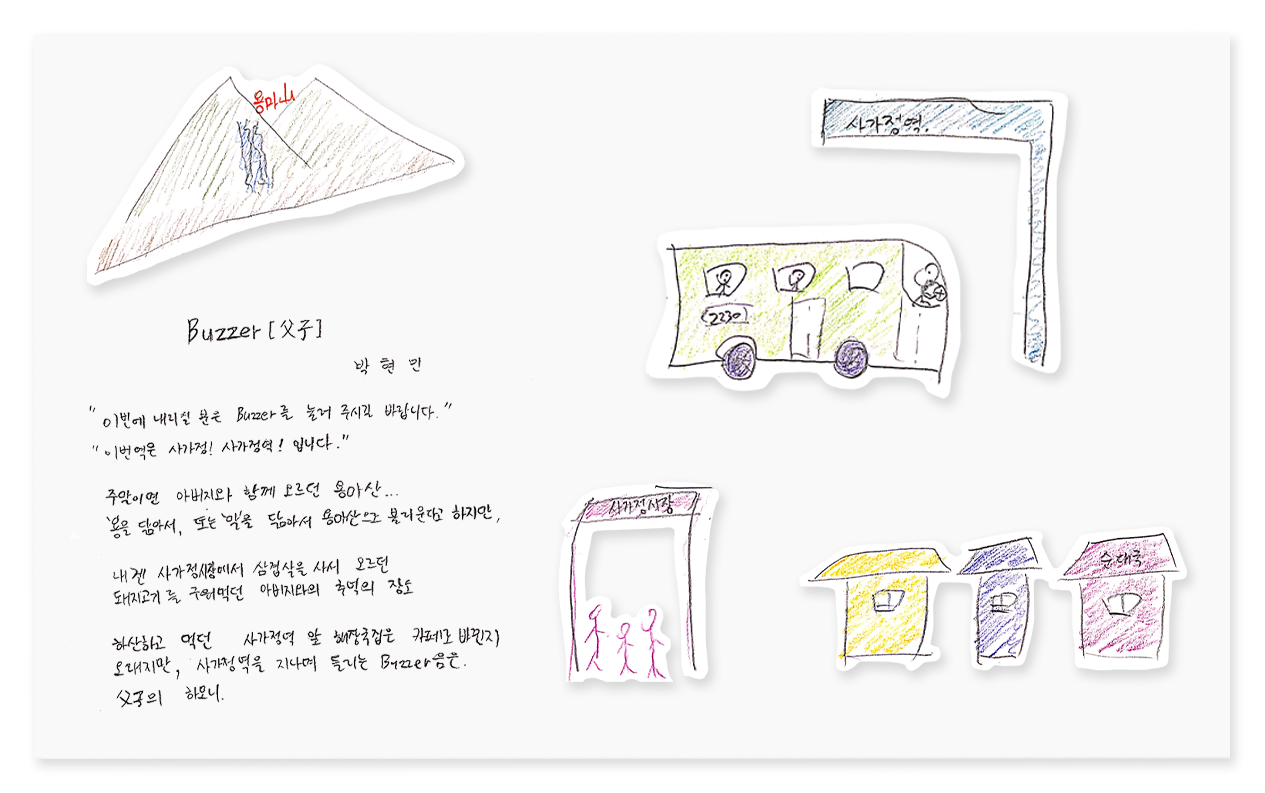 용마산
사가정역.
2230
Buzzer [父子]
박 현 민
"이번에 내리실 분은 Buzzer를 눌러 주시길 바랍니다."
"이번역은 사가정! 사가정역! 입니다."
주말이면 아버지와 함께 오르던 용마산...
'용'을 닮아서, 또는 '말'을 닮아서 용마산으로 불리운다고 하지만,
내겐 사가정시장에서 삼겹살을 사서 오르던
돼지고기를 구워먹던 아버지와의 추억의 장소
하산하고 먹던 사가정역 앞 해장국집은 카페로 바뀐지
오래지만, 사가정역을 지나며 들리는 Buzzer음은.
父子의 하모니.
사가정시장
순대국